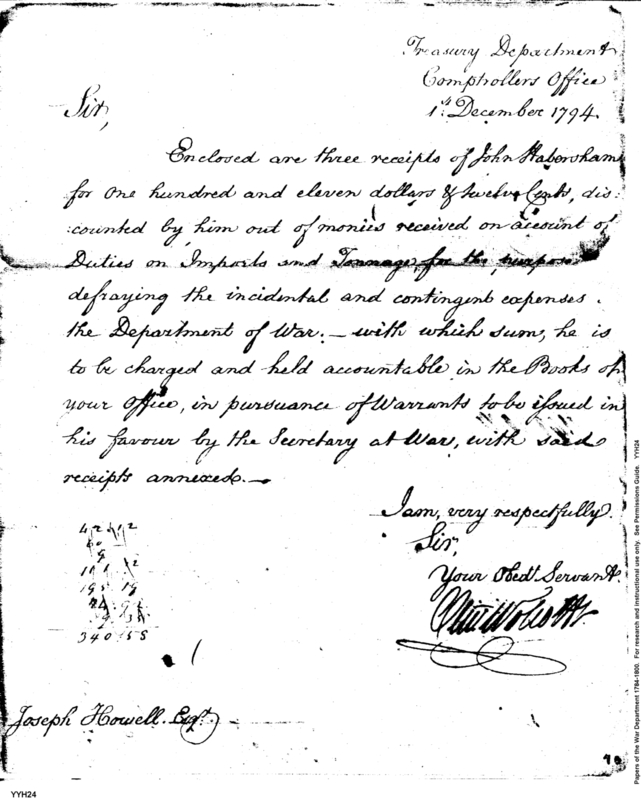 Treasury Department
Comptrollers Office
1st December 1794.
Sir,
Enclosed are three receipts of John Habersham
for One hundred and eleven dollars & twelve Cents, dis:
:counted by him out of monies received on account of
Duties on Imports and Tonnage, for the purpose
defraying the incidental and contingent expenses
the Department of War. — with which sum, he is
to be charged and held accountable in the Books of
your Office, in pursuance of Warrants to be issued in
his favour by the Secretary at War, with said
receipts annexed. —
I am, very respectfully.
Sir,
Your Obedt. Servant.
Oliv Wolcott Jr.
42 12
60
9
111 12
195 19
340 55
Joseph Howell. Esqr.
YYH24
Papers of the War Department 1784-1800. For research and instructional use only. See Permissions Guide. YYH24